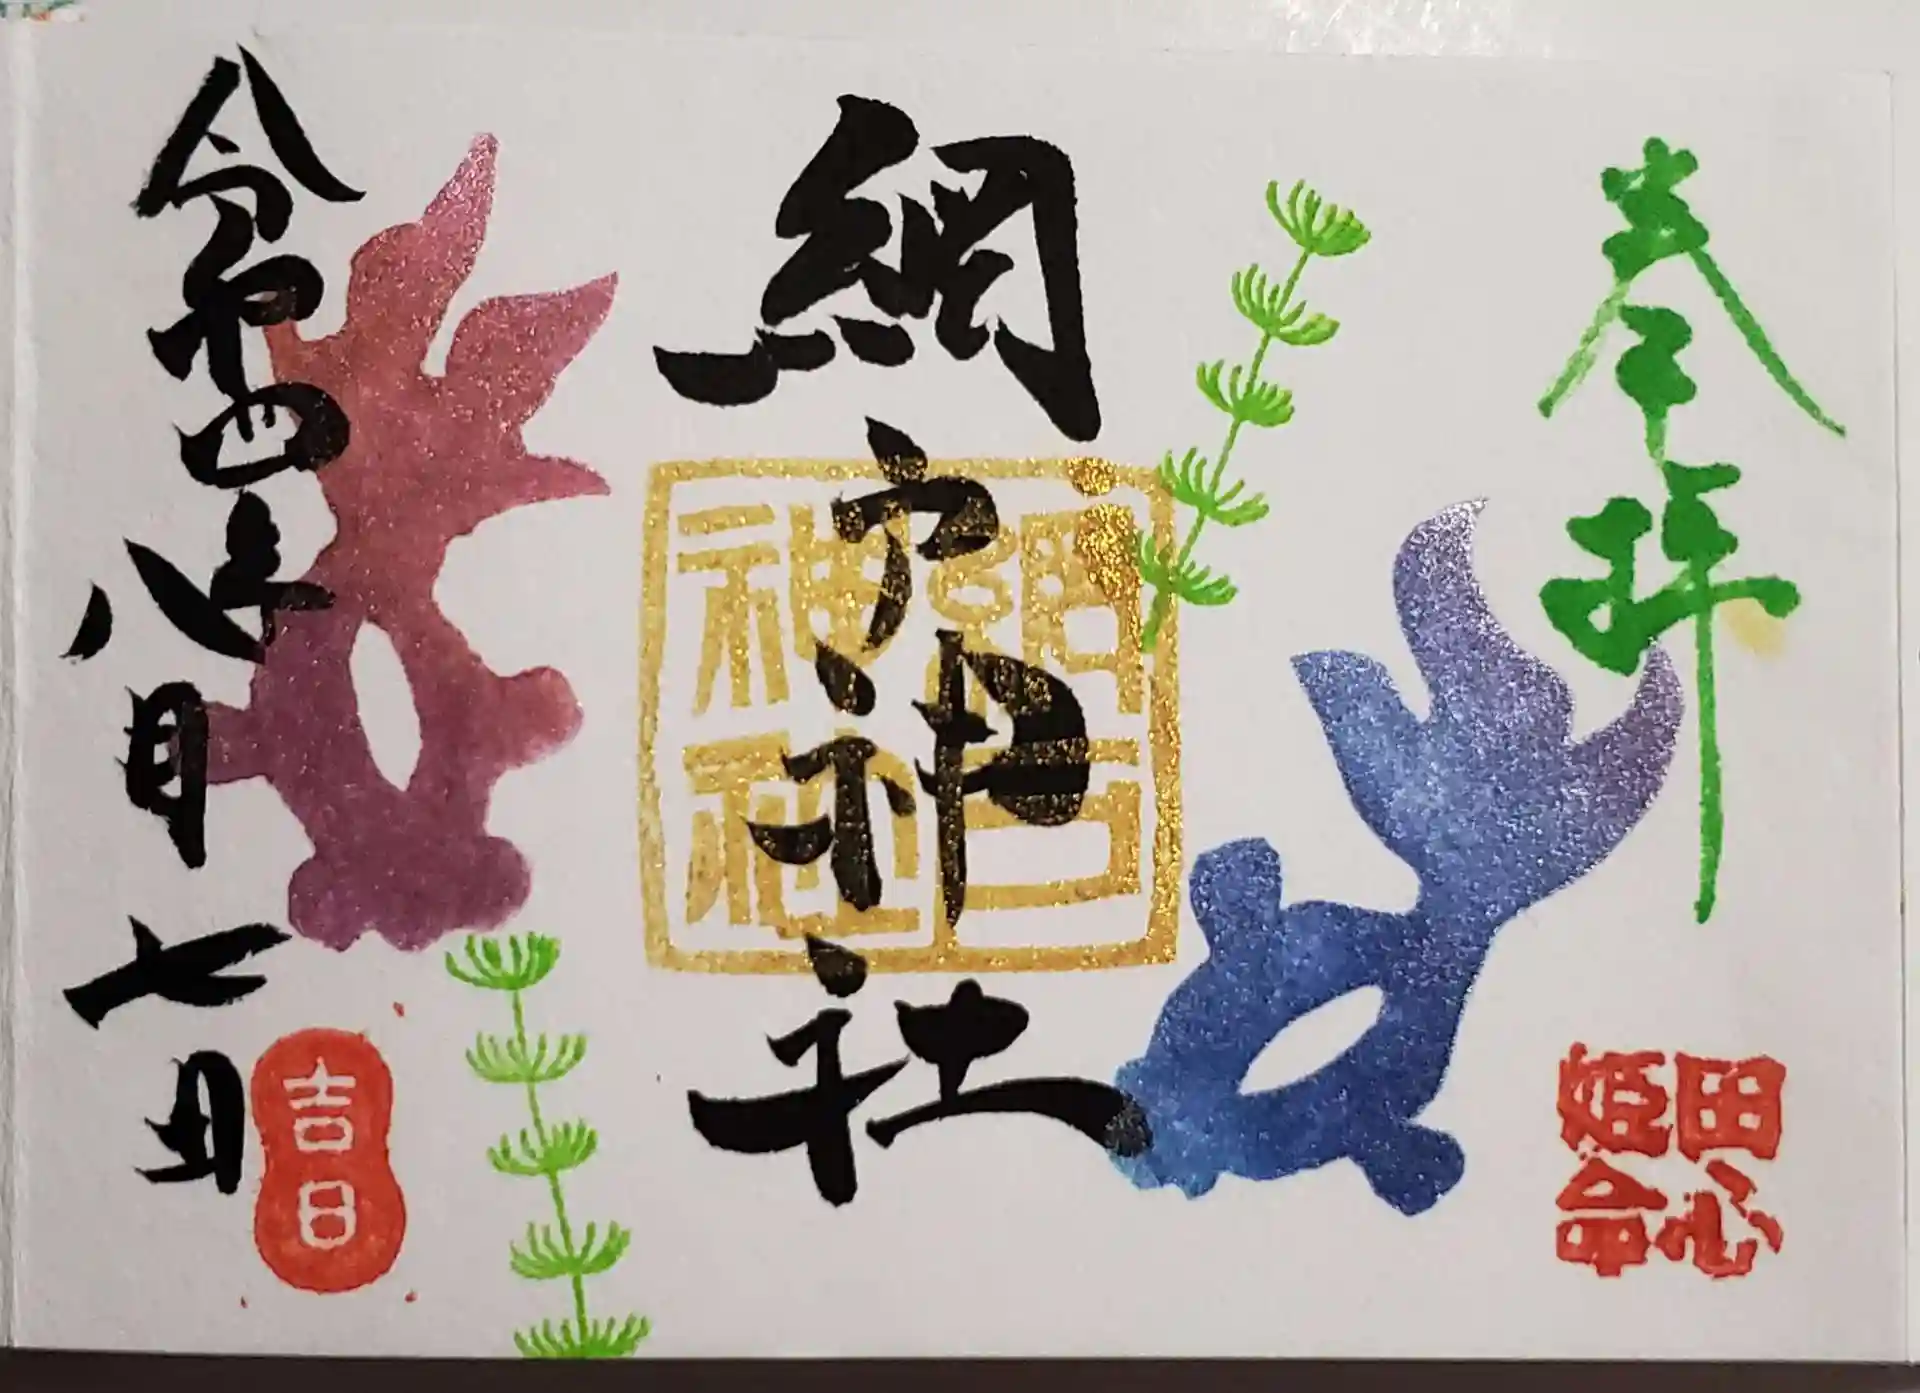 奉拝
田心姫命
網戸神社
網戸神社
令和四年八月七日
吉日